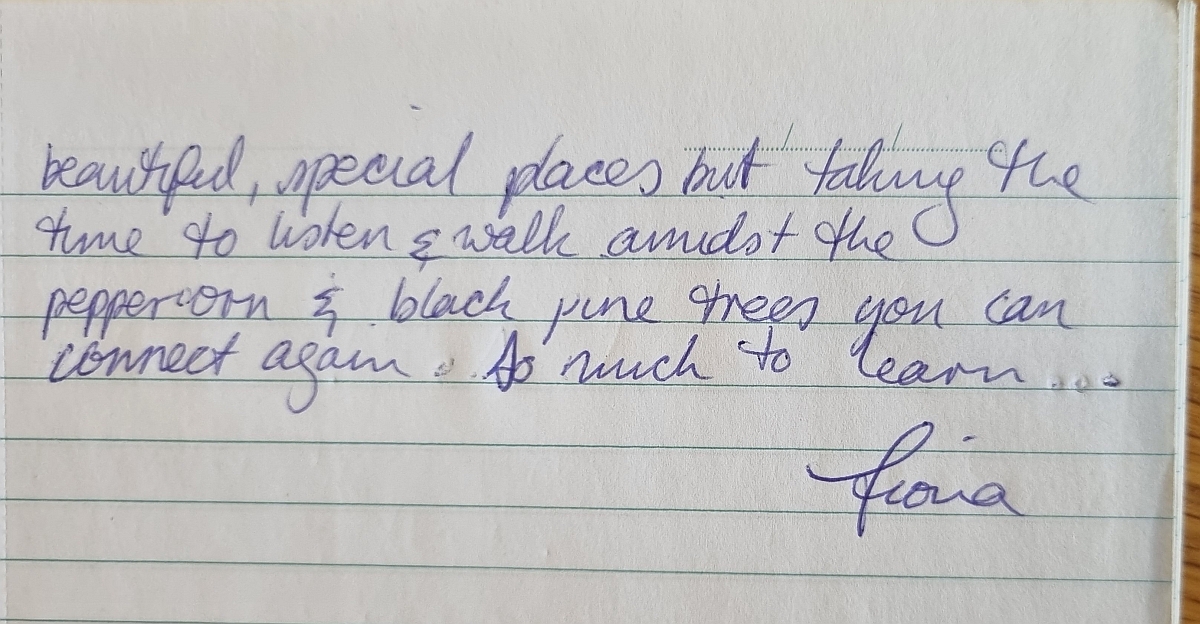 beautiful, special places but taking the
time to listen & walk amidst the
peppercorn & black pine trees you can
connect again. So much to learn...
Fiona